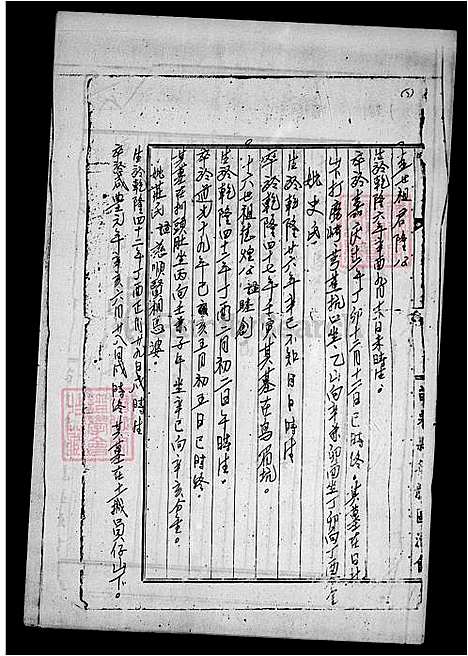 十五世祖君隆公
生於乾隆六年辛酉九月 日未時生。
卒於嘉庆十二年丁卯十二月十二日巳時終。其墓在日計
山下打磨崎 坑 坐乙山向辛兼卯酉坐丁卯向丁酉分金
妣史氏
生於乾隆廿六年辛巳不知日日時生
卒於乾隆四十七年壬寅其墓在烏 坑。
十六世祖 煌公諡 創
生於乾隆四十二年丁酉二月初二日午時生。
卒於道光十九年己亥五月初五日巳時終。
其墓在 頭肚坐丙向壬兼子午坐辛巳向辛亥分金。
妣莊氏諡慈順 媽 婆。
生於乾隆四十二年丁酉正月廿九日戌時生
卒於咸豊元年辛亥六月廿八日戌時終其墓在土城員仔山下。